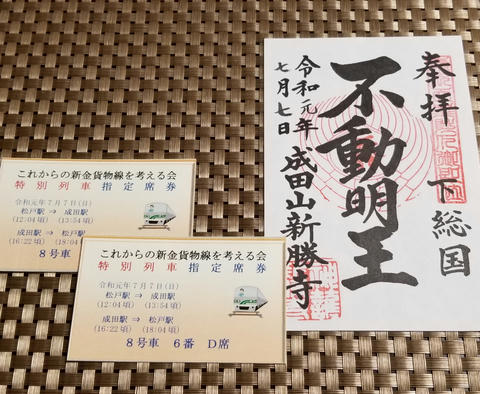 奉拝
下総国
不動明王
令和元年
七月七日
成田山新勝寺
これからの新金貨物線を考える会
特別列車 指定席券
令和元年7月7日(日)
松戸駅 ⇒ 成田駅
(12:04頃) (13:54頃)
成田駅 ⇒ 松戸駅
(16:22頃) (18:04
8号車
これからの新金貨物線を考える会
特別列車 指定席券
令和元年7月7日(日)
松戸駅 ⇒ 成田駅
(12:04頃) (13:54頃)
成田駅 ⇒ 松戸駅
(16:22頃) (18:04頃)
8号車 6番 D席